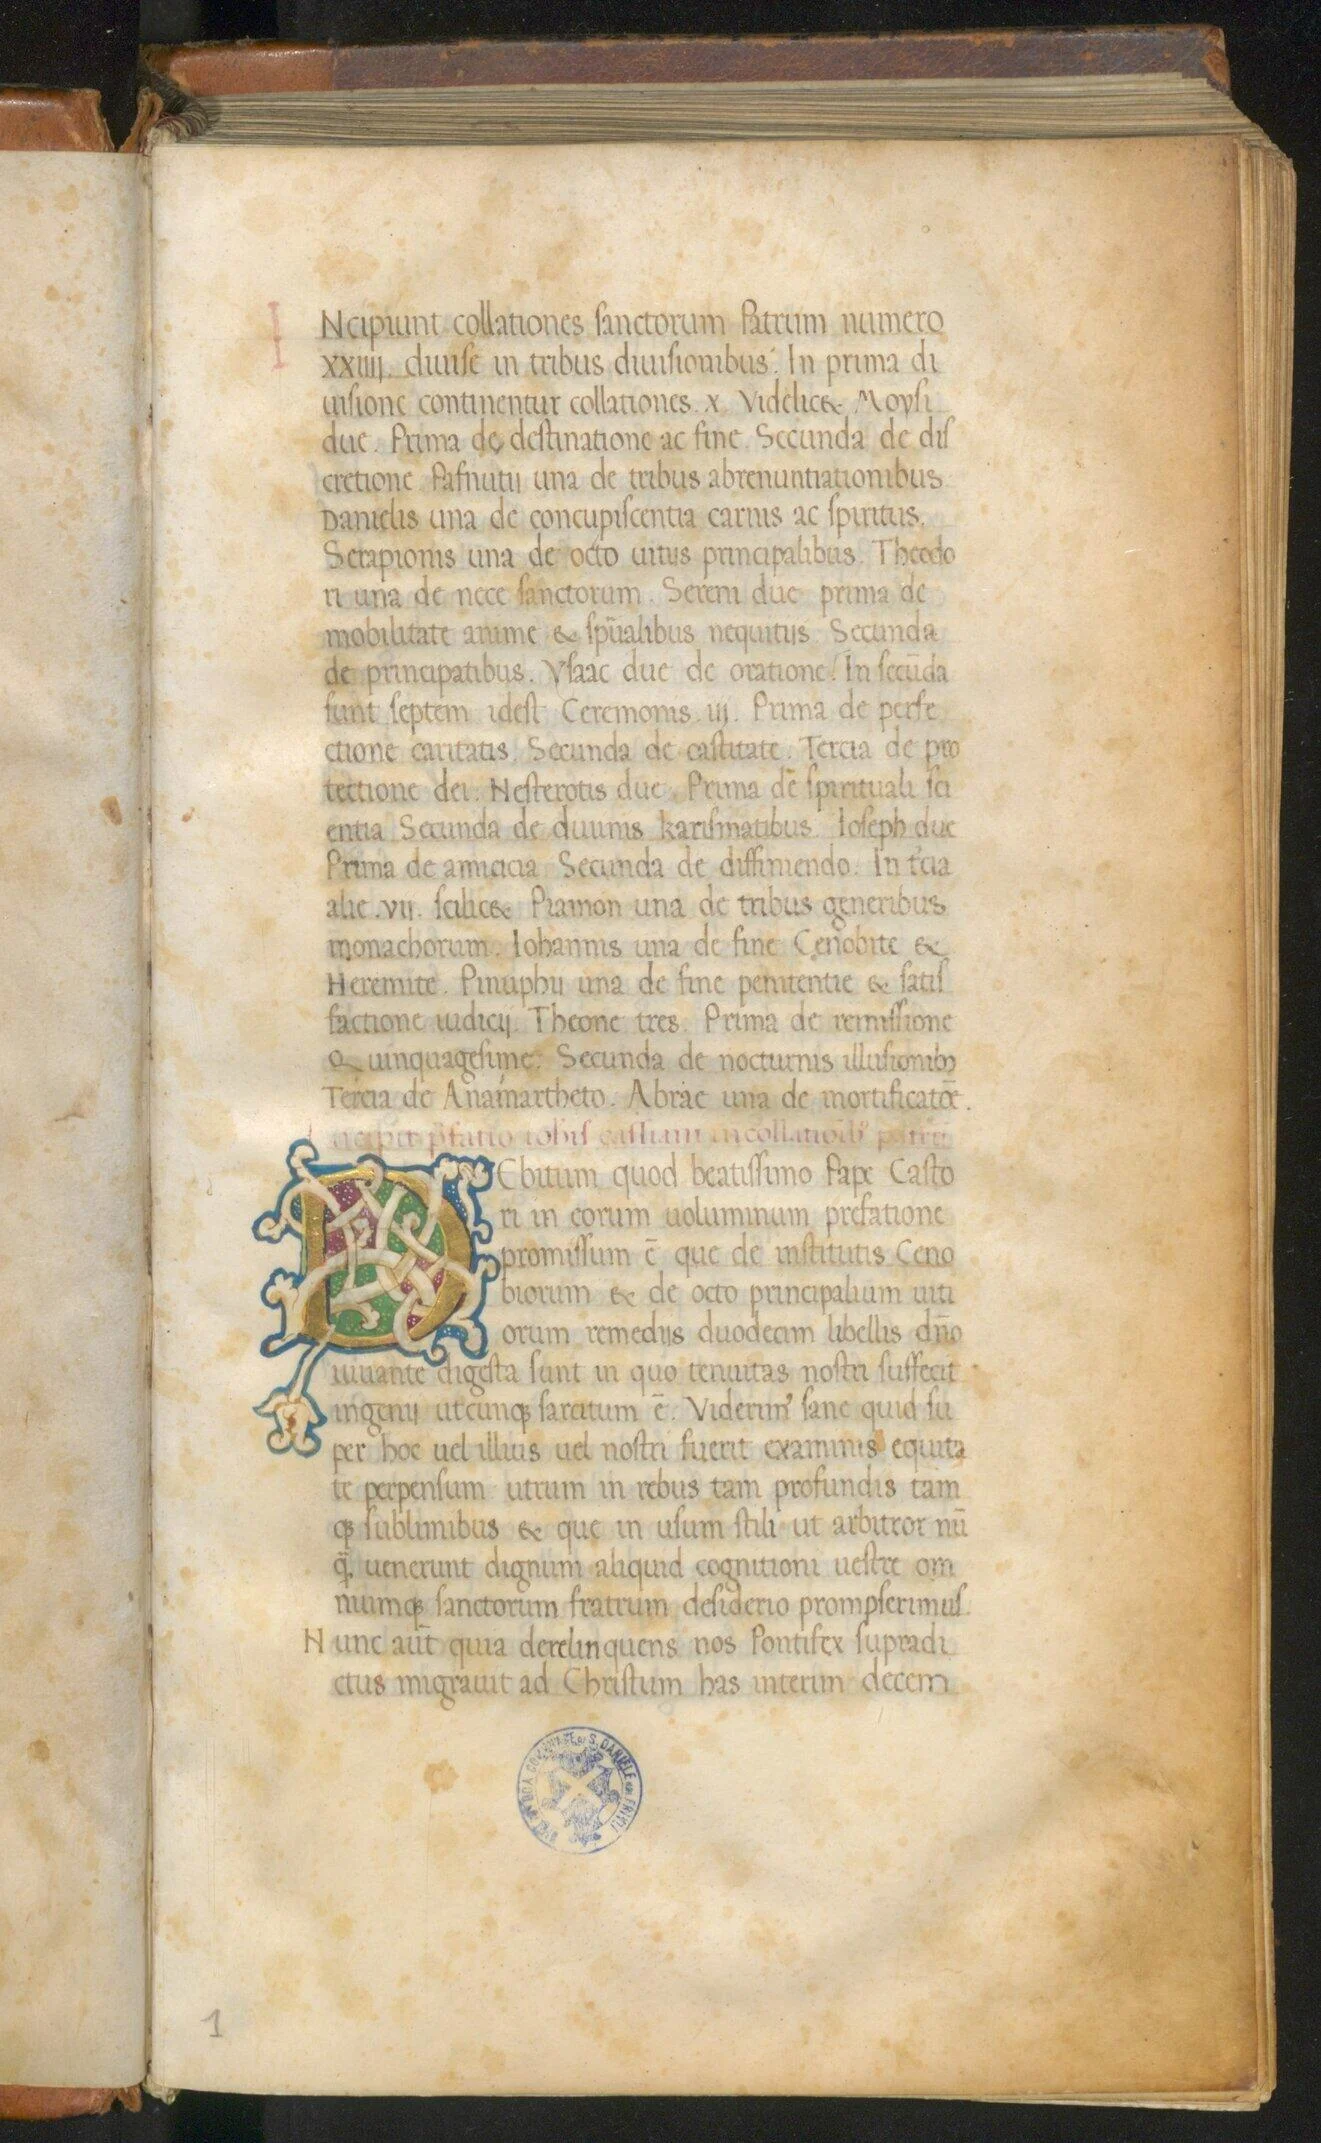 INcipiunt collationes sanctorum Patrum numero
xxiiij. diuise in tribus diuisionibus. In prima di
uisione continentur collationes .x. Videlic& Moysi
due. Prima de destinatione ac fine. Secunda de dis
cretione. Pafnutij una de tribus abrenuntiationibus
Danielis una de concupiscentia carnis ac spiritus.
Serapionis una de octo uitijs principalibus. Theodo
ri una de nece sanctorum. Sereni due prima de
mobilitate anime & spũalibus nequitijs. Secunda
de principatibus. Ysaac due de oratione. In secũda
sunt septem idest Ceremonis .iij. Prima de perfe
ctione caritatis. Secunda de castitate. Tercia de pro
tectione dei. Nesterotis due. Prima de spirituali sci
entia Secunda de diuinis karismatibus. Ioseph due
Prima de amicicia Secunda de diffiniendo. In t'cia
alie .vij. scilic& Piamon una de tribus generibus
monachorum. Iohannis una de fine Cenobite &
Heremite. Pinuphij una de fine penitentie & satis
factione iudicij. Theone tres. Prima de remissione
Quinquagesime. Secunda de nocturnis illusionibꝫ
Tercia de Anamartheto. Abrae una de mortificatõe.
Incipit p̃fatio iohis cassiani in collationib' patrũ
DEbitum quod beatissimo Pape Casto
ri in eorum uoluminum prefatione
promissum ẽ que de institutis Ceno
biorum & de octo principalium uiti
orum remedijs duodecim libellis dñο
iuuante digesta sunt in quo tenuitas nostri suffecit
ingenij utcunqꝫ sarcitum ẽ. Viderim' sane quid su
per hoc uel illius uel nostri fuerit examinis equita
te perpensum utrum in rebus tam profundis tam
qꝫ sublimibus & que in usum stili ut arbitror nũ
q̃. uenerunt dignum aliquid cognitioni uestre om
niumqꝫ sanctorum fratrum desiderio prompserimus.
Nunc aut̃ quia derelinquens nos Pontifex supradi
ctus migrauit ad Christum has interim decem
BIBLIOTECA COMUNALE DI S. DANIELE DEL FRIULI
1